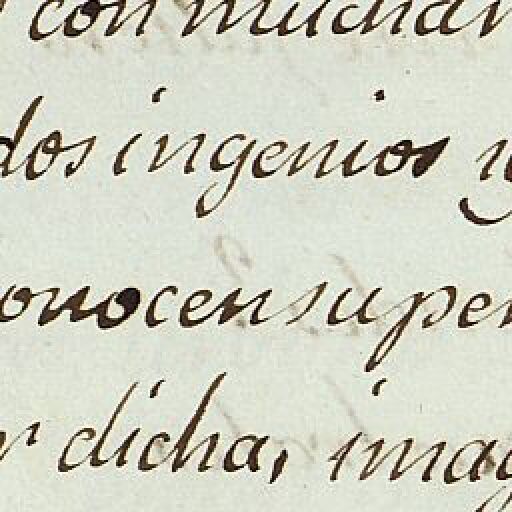 con muchar
dos ingenios y
onocen super
r dicha, imag